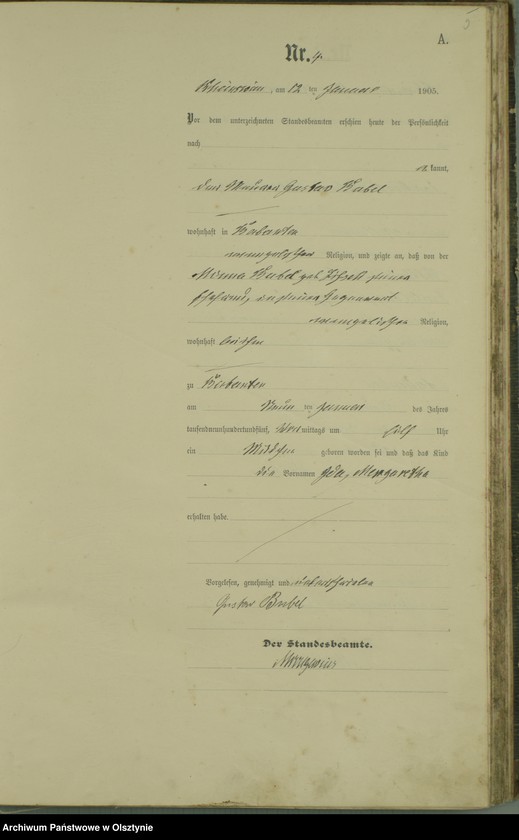 A.
Nr. 4
am 12 ten Januar 1905.
Vor dem unterzeichneten Standesbeamten erschien heute der Persönlichkeit
nach
kannt,
Gustav Babel
wohnhaft in
evangelischer Religion, und zeigte an, daß von der
Minna Babel geb. seiner
Ehefrau, in seiner Gegenwart
evangelischer Religion,
wohnhaft bei ihm
zu
am neun ten Januar des Jahres
tausendneunhundertundfünf, Vormittags um elf Uhr
ein Mädchen geboren worden sei und daß das Kind
die Vornamen Ida, Margaretha
erhalten habe.
Vorgelesen, genehmigt und unterschrieben
Gustav Babel
Der Standesbeamte.
Archiwum Państwowe w Olsztynie